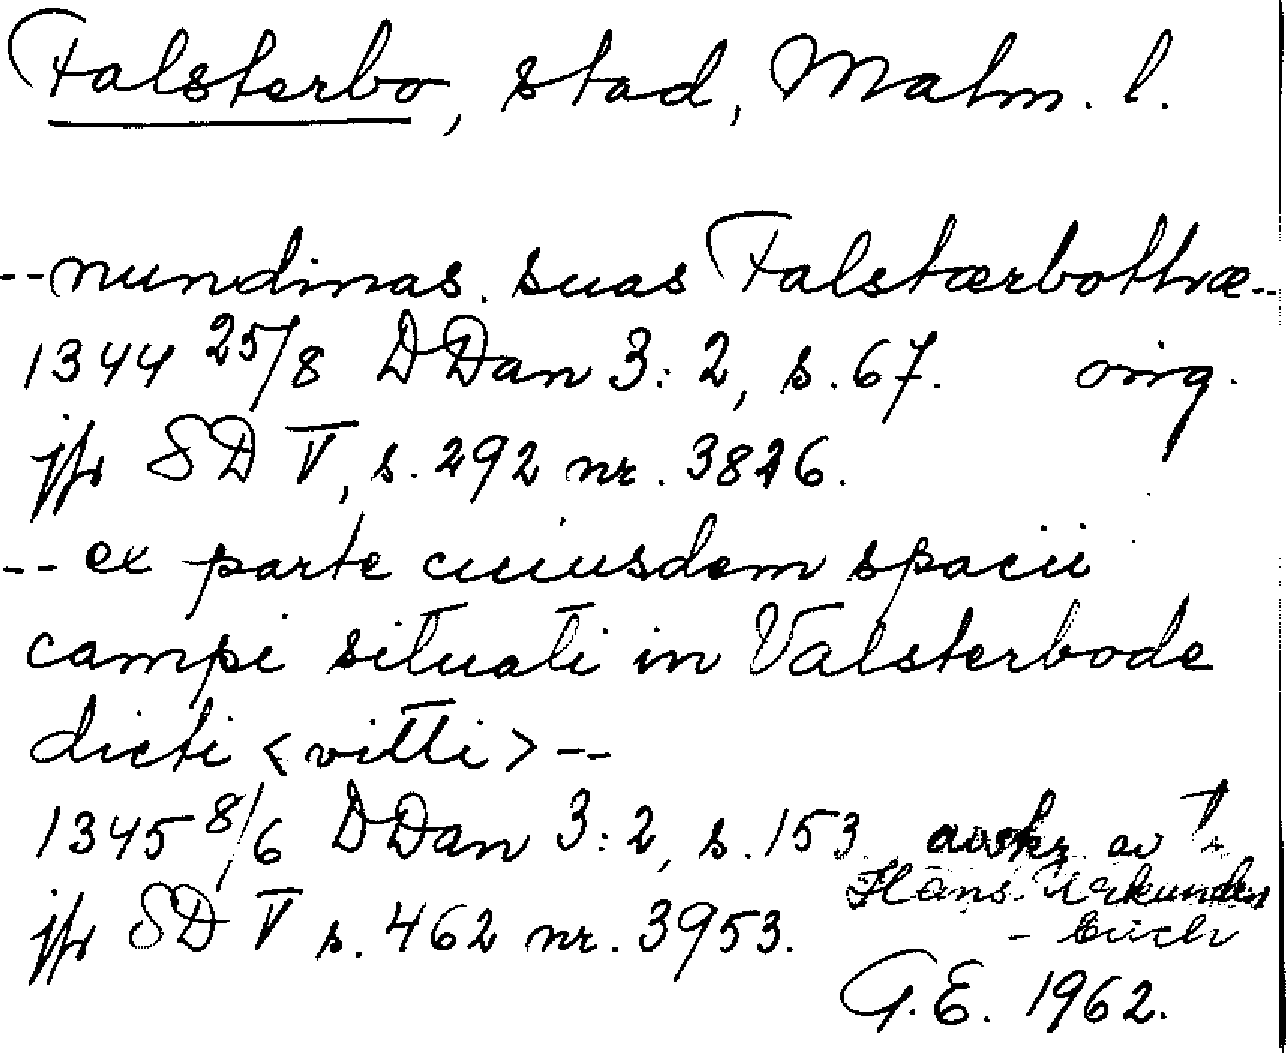 Falsterbo, stad, Malm. l.
--nundinas suas Falstærbothæ--
1344 25/8 DDan 3:2, s. 67. orig.
jfr SD V, s. 292 nr. 3826.
-- ex parte cuiusdem spacii
campi situati in Valsterbode
dicti <vitti> --
1345 8/6 DDan 3:2, s. 153. avskr. av
Hans. Urkunden
- büch
jfr SD V s. 462 nr. 3953.
G.E. 1962.